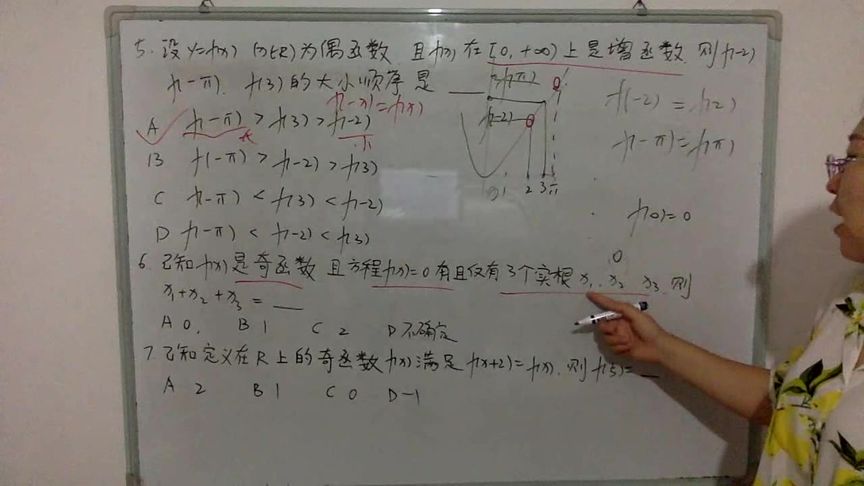 5. 设 y=f(x) (x∈R)为偶函数 且f(x)在[0,+∞)上是增函数.则f(-2)
f(-π). f(3)的大小顺序是 ___
f(-x)=f(x)
A f(-π)>f(3)>f(-2)
B f(-π)>f(-2)>f(3)
C f(-π)<f(3)<f(-2)
D f(-π)<f(-2)<f(3)
f(π)
f(-2)
2 3 π
f(-2)=f(2)
f(-π)=f(π)
f(0)=0
0
6. 已知f(x)是奇函数 且方程f(x)=0有且仅有3个实根x₁、x₂、x₃.则
x₁+x₂+x₃=___
A 0. B 1 C 2 D 不确定
7. 已知定义在R上的奇函数f(x)满足f(x+2)=f(x).则f(5)=__
A 2 B 1 C 0 D -1